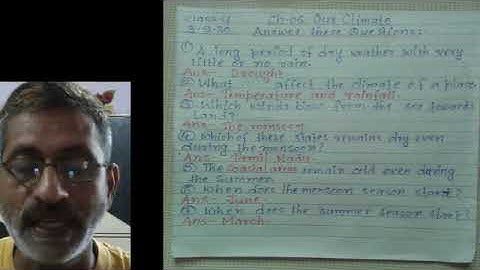 class-4 Ch-06 Our Climate
3-9-20 Answer these Questions:
① A long period of dry weather with very
little or no rain.
Ans- Drought
② What affect the climate of a place.
Ans- Temperature and rainfall.
③ Which winds blow from the sea towards
Land?
Ans- The monsoon
④ Which of these states remains dry even
during the monsoon?
Ans- Tamil Nadu.
⑤ The coastal areas remain cold even during
the summer.
⑥ When does the monsoon season start?
Ans- June.
When does the summer season start?
Ans- March.